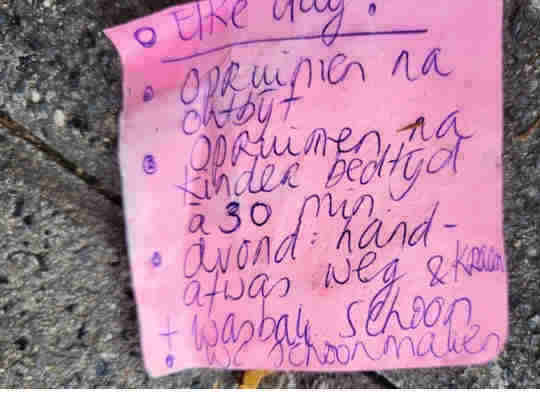 Elke dag!
opruimen na
ontbyt
opruimen na
kinder bedtyd
à 30 min.
avond: hand-
afwas weg & Kraan
+ wasbak schoon
wc schoonmaken